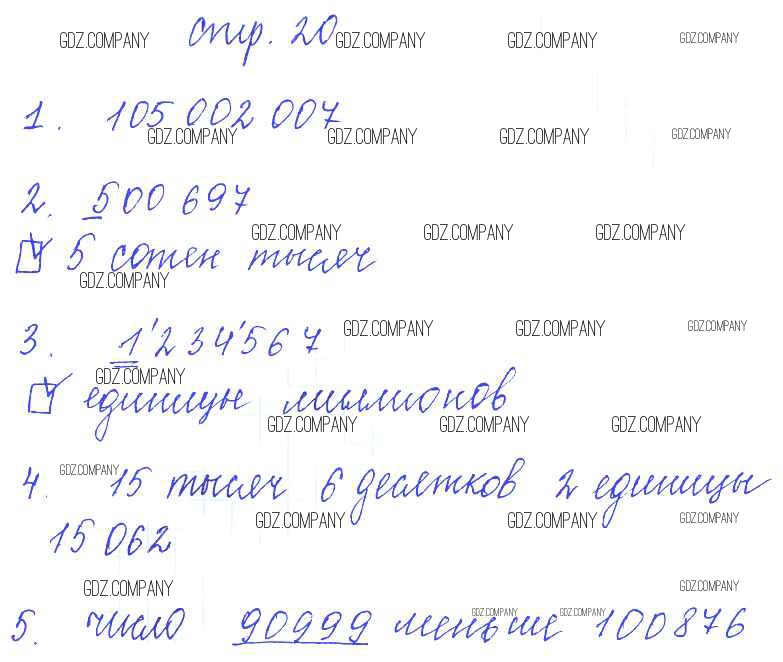 GDZ.COMPANY стр. 20 GDZ.COMPANY GDZ.COMPANY GDZ.COMPANY
1. 105 002 007
GDZ.COMPANY GDZ.COMPANY GDZ.COMPANY GDZ.COMPANY
2. 500 697
GDZ.COMPANY GDZ.COMPANY GDZ.COMPANY
5 сотен тысяч
GDZ.COMPANY
3. 1'234'567 GDZ.COMPANY GDZ.COMPANY GDZ.COMPANY
GDZ.COMPANY
единицы миллионов
GDZ.COMPANY GDZ.COMPANY GDZ.COMPANY
4. GDZ.COMPANY 15 тысяч 6 десятков 2 единицы
GDZ.COMPANY GDZ.COMPANY GDZ.COMPANY
15 062
GDZ.COMPANY GDZ.COMPANY
GDZ.COMPANY GDZ.COMPANY
5. число 90999 меньше 100876